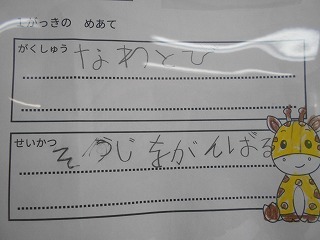 がっきの めあて
がくしゅう
なわとび
せいかつ
そうじをがんばる